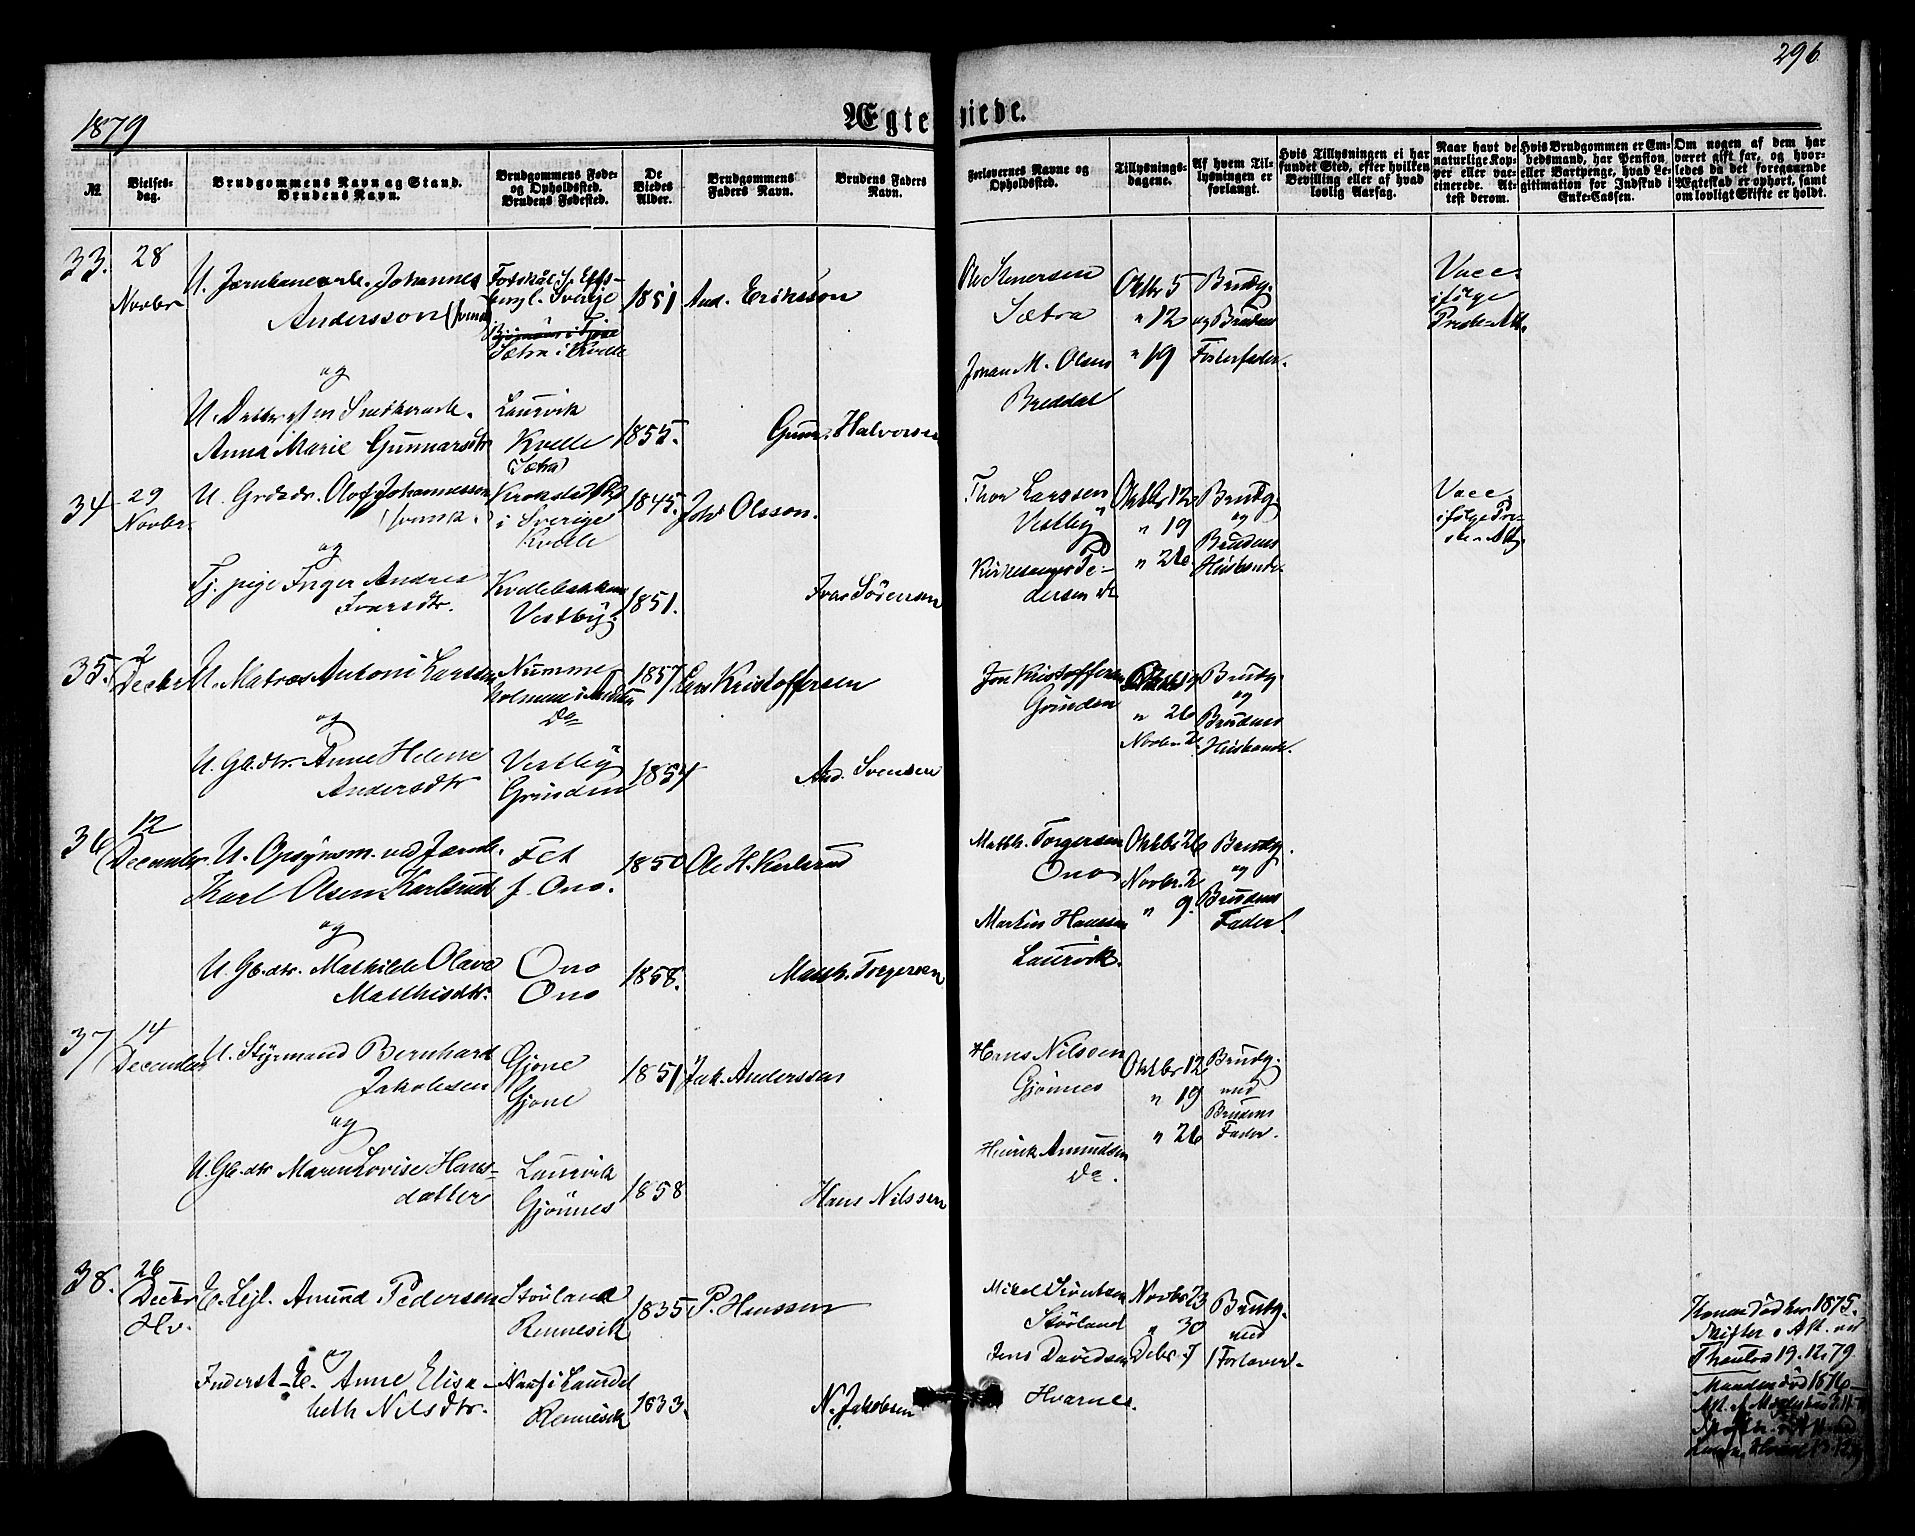 296
1879
Ægteviede.
№.
Vielses-
dag.
Brudgommens Navn og Stand.
Brudens Navn.
Brudgommens Føde-
og Opholdssted.
Brudens Fødested.
De
Viedes
Alder.
Brudgommens
Faders Navn.
Brudens Faders
Navn.
Forlovernes Navne og
Opholdssted.
Tillysnings-
dagene.
Af hvem Til-
lysningen er
forlangt.
Hvis Tillysningen ei har
fundet Sted, efter hvilken
Bevilling eller af hvad
lovlig Aarsag.
Naar havt de
naturlige Kop-
per eller vac-
cinerede. At-
test derom.
Hvis Brudgommen er Em-
bedsmand, har Pension
eller Vartpenge, hvad Le-
gitimation for Indskud i
Enke-Cassen.
Om nogen af dem har
været gift før, og hvor-
ledes da det foregaaende
Ægteskab er ophørt, samt
om lovligt Skifte er holdt.
33.
28
Novbr
U. Jernbanearb. Johannes
Andersson (svensk)
og
U. Datter af en
Anna Marie Gunnarsdtr
Sverige
Sætra i Kvelle
Laurvik
Kvelle
(Sætra)
1851
1855.
And. Eriksson
Gunn. Halvorsen
Ole Stenersen
Sætra
Johan M. Olsen
Breddal
Oktbr 5
" 12
" 19
Brudg.
og Brudens
Fosterfader.
Vacc.
ifølge
Præste-Att.
34
29
Novbr.
U. Grdsdr. Olof Johannessen
(svensk.)
og
Tj. pige Inger Andrea
Ivarsdtr.
Krokstad
i Sverige
Kvelle
Kvellebakken
Vestby.
1845.
1851.
Joh. Olsson.
Ivar Sørensen
Thor Larssen
Vestby
Kirkesanger Pe-
dersen
Oktbr 12
" 19
" 26
Brudg.
og
Brudens
Husbonde.
Vacc.
ifølge Præ-
ste-Att.
35.
2
Decbr
U. Matros Antoni Larsen
og
U. Gb.dtr. Anne Helene
Andersdtr
Numme
Do
Vestby
Grinden
1857
1854
Lars Kristoffersen
And. Svensen
Jon Kristoffersen
Grinden
" 26
Novbr. 2
Brudg.
og
Brudens
Husbonde.
36
12
December
U. Opsynsm. ved Jernb.
Karl Olsen Karlsrud
og
U. Gb.dtr. Mathilde Olava
Matthisdtr.
Fet
f. Ono.
Ono
Ono
1850
1858.
Ole H. Karlsrud
Matth. Torgersen
Matth. Torgersen
Ono
Martin Hanssen
Laurvik.
Oktbr 26
Novbr. 2
" 9.
Brudg.
og
Brudens
Fader.
37
14
December
U. Styrmand Bernhard
Jakobsen
og
U. Gb.dtr Maren Lovise Hans-
datter
Gjone
Gjone
Laurvik
Gjønnes
1851
1858
Jak. Anderssen
Hans Nilssen
Hans Nilssen
Gjønnes
Henrik Amundsen
Do.
Oktbr 12
" 19
" 26
Brudg.
med
Brudens
Fader.
38.
26
Decbr
Hv.
E. Lejl. Amund Pedersen
og
Inderst-E. Anne Elisa-
beth Nilsdtr.
Størland
Rennesik
Rennesik
1835
1833.
P. Hanssen
N. Jakobsen
Mikel
Størland
Jens Davidsen
Hvarnes.
Novbr 23
" 30
Debr. 7
Brudg.
med
Forlovere.
Konen død 1875.
19.12.79
Manden død 1876